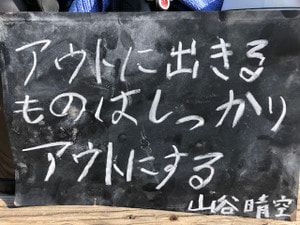 アウトに出きる
ものはしっかり
アウトにする
山谷晴空